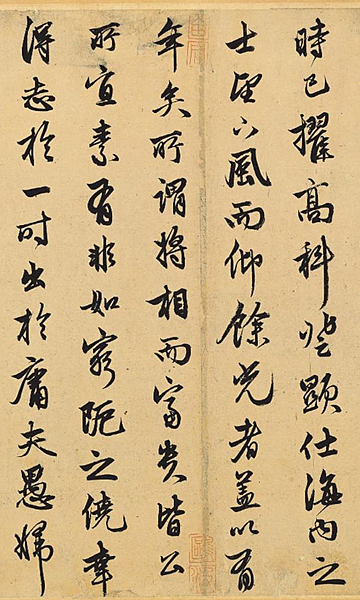 時已擢高科登顯仕海内之
士望下風而仰餘光者蓋以有
年矣所謂將相而富貴皆公
所宜素有非如窮阨之僥幸
得志於一時出於庸夫愚婦